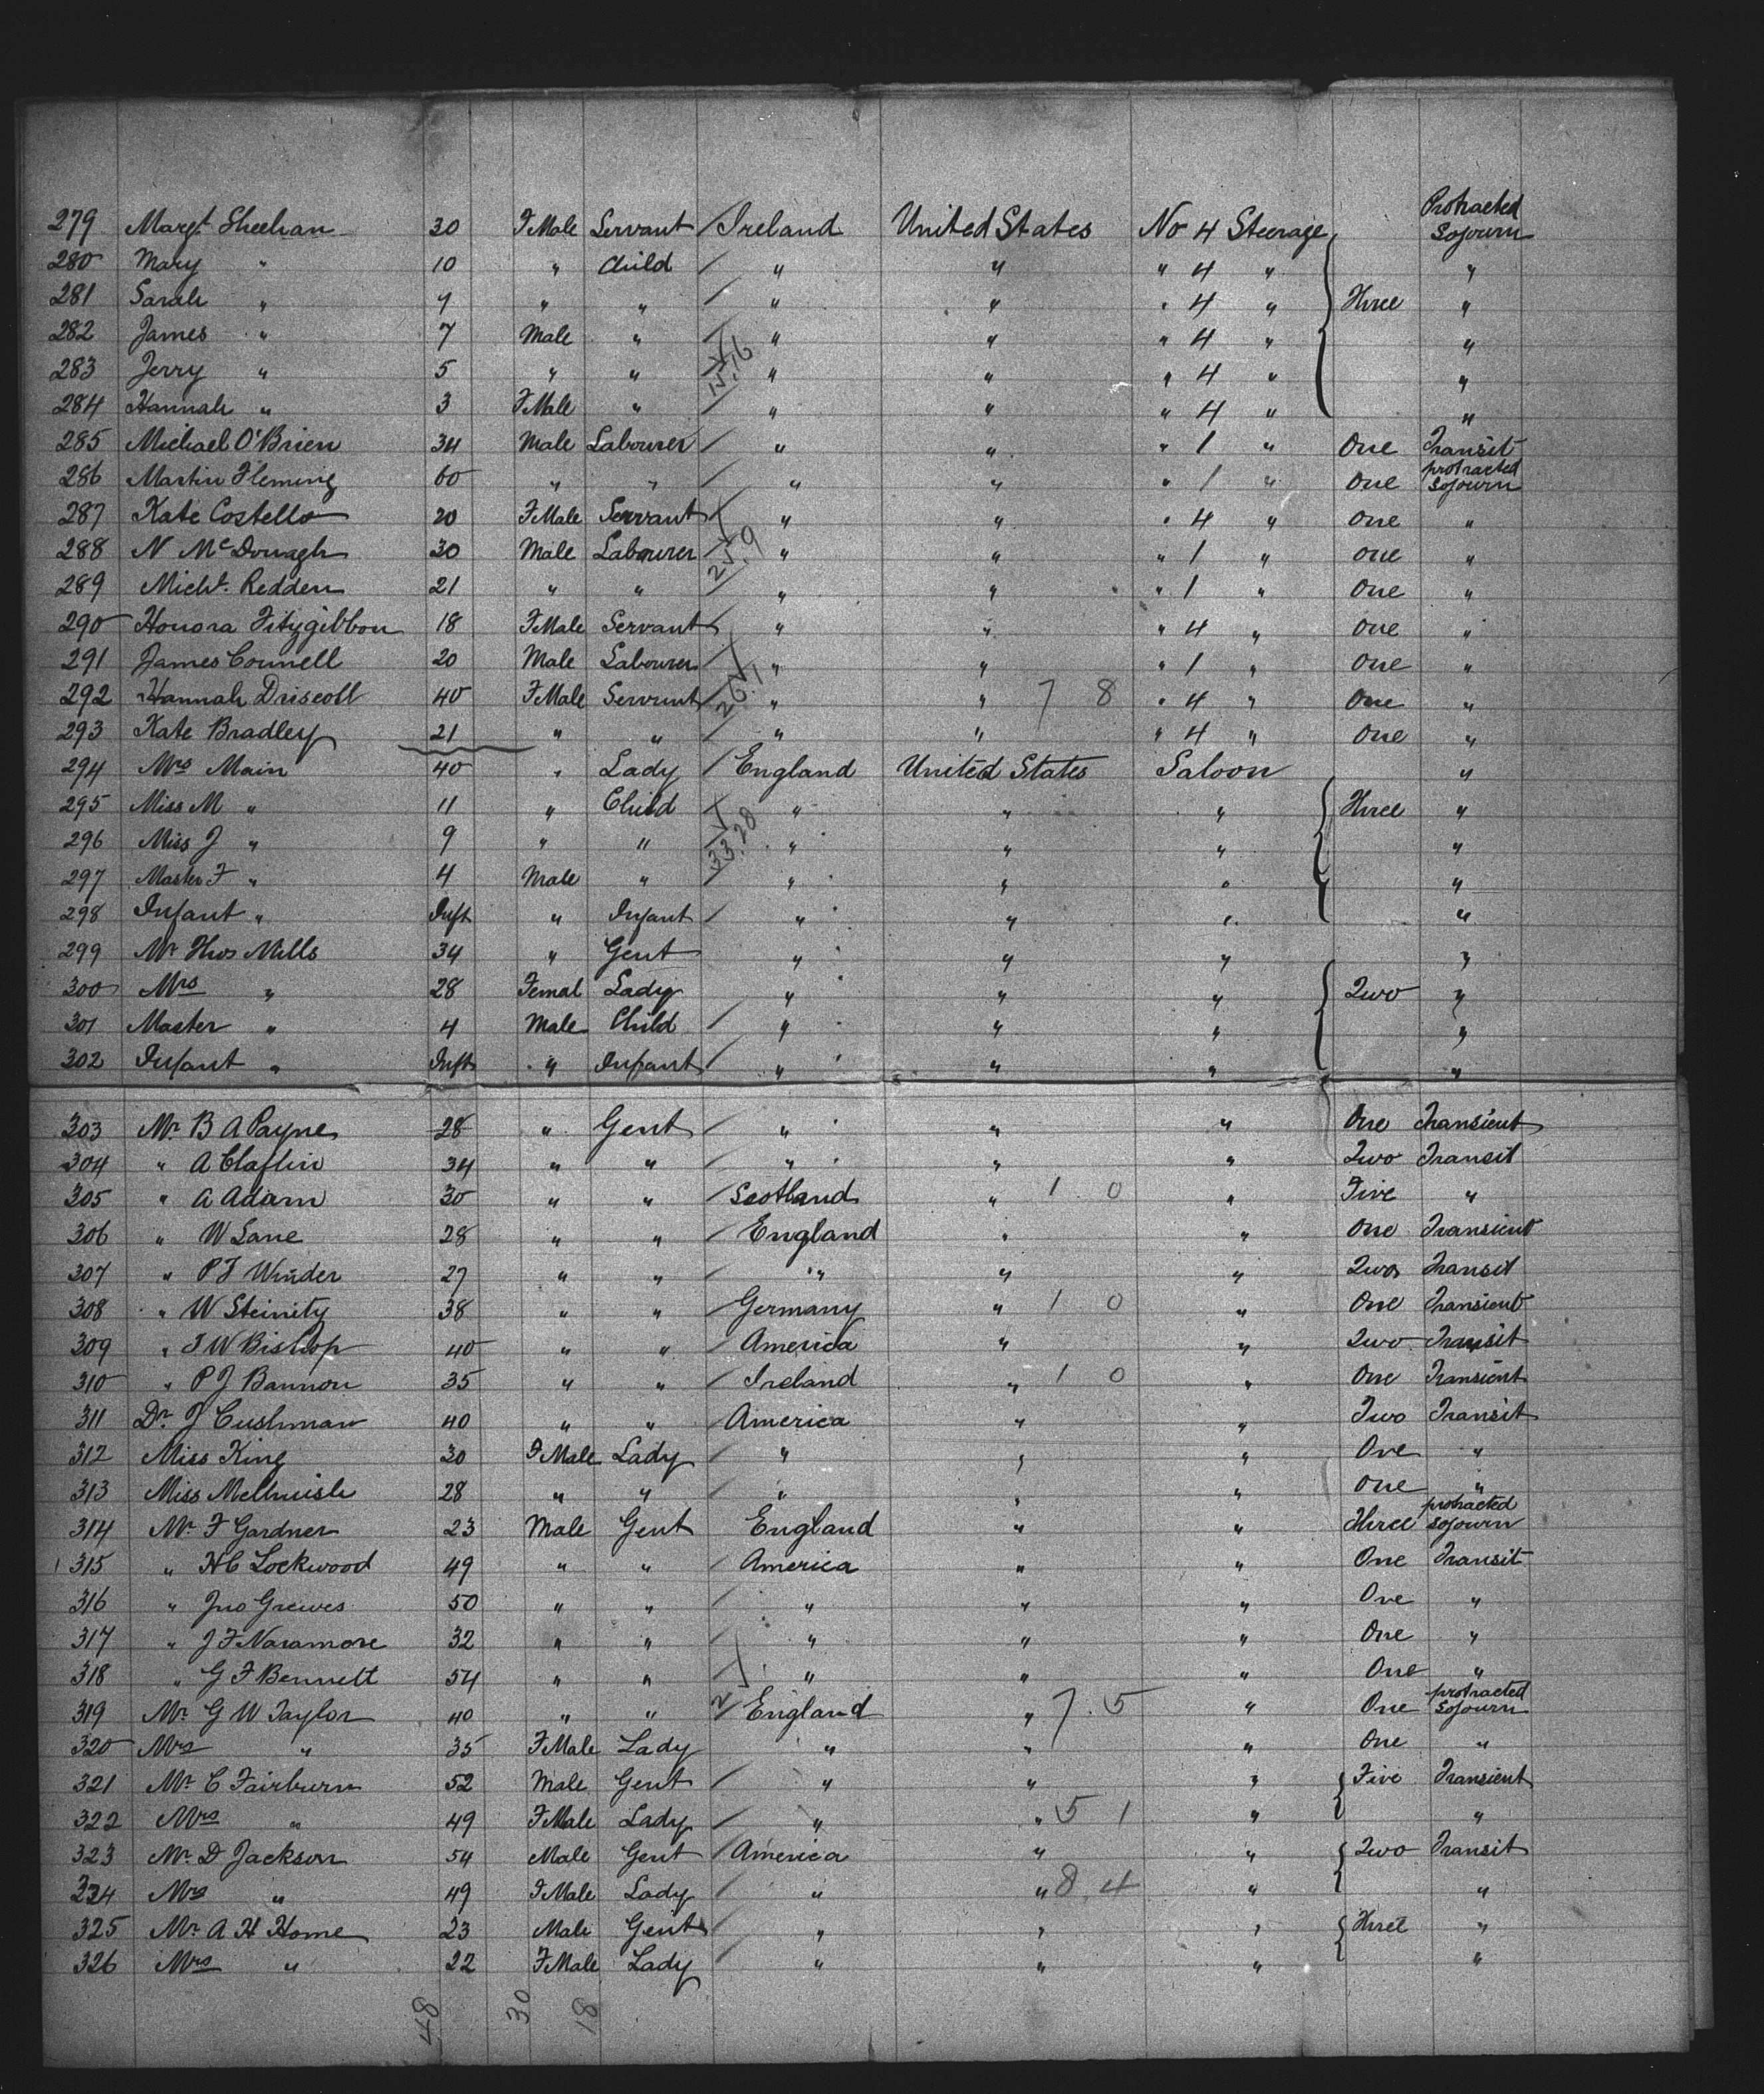 279 Margt Sheehan 30 FMale Servant Ireland United States No 4 Steerage Protracted Sojourn
280 Mary " 10 " Child " " " 4 " "
281 Sarah " 9 " " " " " 4 " Three "
282 James " 7 Male " " " " 4 " "
283 Jerry " 5 " " 15.16 " " " 4 " "
284 Hannah " 3 FMale " " " " 4 " "
285 Michael O'Brien 34 Male Labourer " " " 1 " One Transit
286 Martin Fleming 60 " " " " " 1 " One protracted Sojourn
287 Kate Costello 20 FMale Servant " " " 4 " One "
288 N McDonagh 30 Male Labourer 25.9 " " " 1 " One "
289 Michl. Redden 21 " " " " " 1 " One "
290 Honora Fitzgibbon 18 FMale Servant " " " 4 " One "
291 James Connell 20 Male Labourer " " " 1 " One "
292 Hannah Driscoll 40 FMale Servant 26.1 " " 7 8 " 4 " One "
293 Kate Bradley 21 " " " " " 4 " One "
294 Mrs Main 40 " Lady England United States Saloon "
295 Miss M " 11 " Child " " " Three "
296 Miss J " 9 " " 33.28 " " " "
297 Master F " 4 Male " " " " "
298 Infant " Inft " Infant " " " "
299 Mr Thos Mills 34 " Gent " " " "
300 Mrs " 28 Femal Lady " " " Two "
301 Master " 4 Male Child " " " "
302 Infant " Inft " Infant " " " "
303 Mr B A Payne 28 " Gent " " " One Transient
304 " A Claflin 34 " " " " " Two Transit
305 " A Adam 30 " " Scotland " 1 0 " Five "
306 " W Lane 28 " " England " " One Transient
307 " P F Winder 27 " " " " " Two Transit
308 " W Steinity 38 " " Germany " 1 0 " One Transient
309 " T W Bishop 40 " " America " " Two Transit
310 " P J Bannon 35 " " Ireland " 1 0 " One Transient
311 Dr. J Cushman 40 " " America " " Two Transit
312 Miss King 30 FMale Lady " " " One "
313 Miss Melhuish 28 " " " " " One "
314 Mr F Gardner 23 Male Gent England " " Three protracted sojourn
315 " H C Lockwood 49 " " America " " One Transit
316 " Jno Grewes 50 " " " " " One "
317 " J F Naramore 32 " " " " " One "
318 " G F Bennett 54 " " " " " One "
319 Mr G W Taylor 40 " " England " 7.5 " One protracted Sojourn
320 Mrs " 35 FMale Lady " " " One "
321 Mr C Fairburn 52 Male Gent " " " Five Transient
322 Mrs " 49 FMale Lady " " 5 1 " "
323 Mr D Jackson 54 Male Gent America " " Two Transit
324 Mrs " 49 FMale Lady " " 8 4 " "
325 Mr A H Home 23 Male Gent " " " Three "
326 Mrs " 22 FMale Lady " " " "
48 30 18